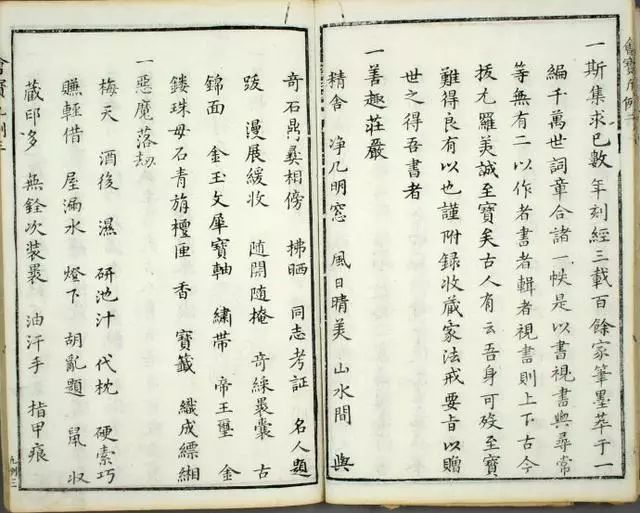 一斯集求已數年刻經三載百餘家筆墨萃于一
編千萬世詞章合諸一帙是以書視書與尋常
等無有二以作者書者輯者視書則上下古今
拔尤羅美誠至寶矣古人有云吾身可歿至寶
難得良有以也謹附録收藏家法戒要旨以贈
世之得吾書者
一善趣莊嚴
精舍 凈几明窓 風日晴美 山水間 與
奇石鼎彝相傍 拂晒 同志考証 名人題
跋 漫展緩收 随開随掩 奇綵裹囊 古
錦面 金玉文犀寶軸 繡帶 帝王璽 金
鏤珠母石青旃檀匣香 寶籤 織成縹緗
一惡魔落劫
梅天 酒後 濕 研池汁 代枕 硬索巧
賺輕借 屋漏水 燈下 胡亂題 鼠 収
藏印多 無銓次装裹 油汗手 指甲痕